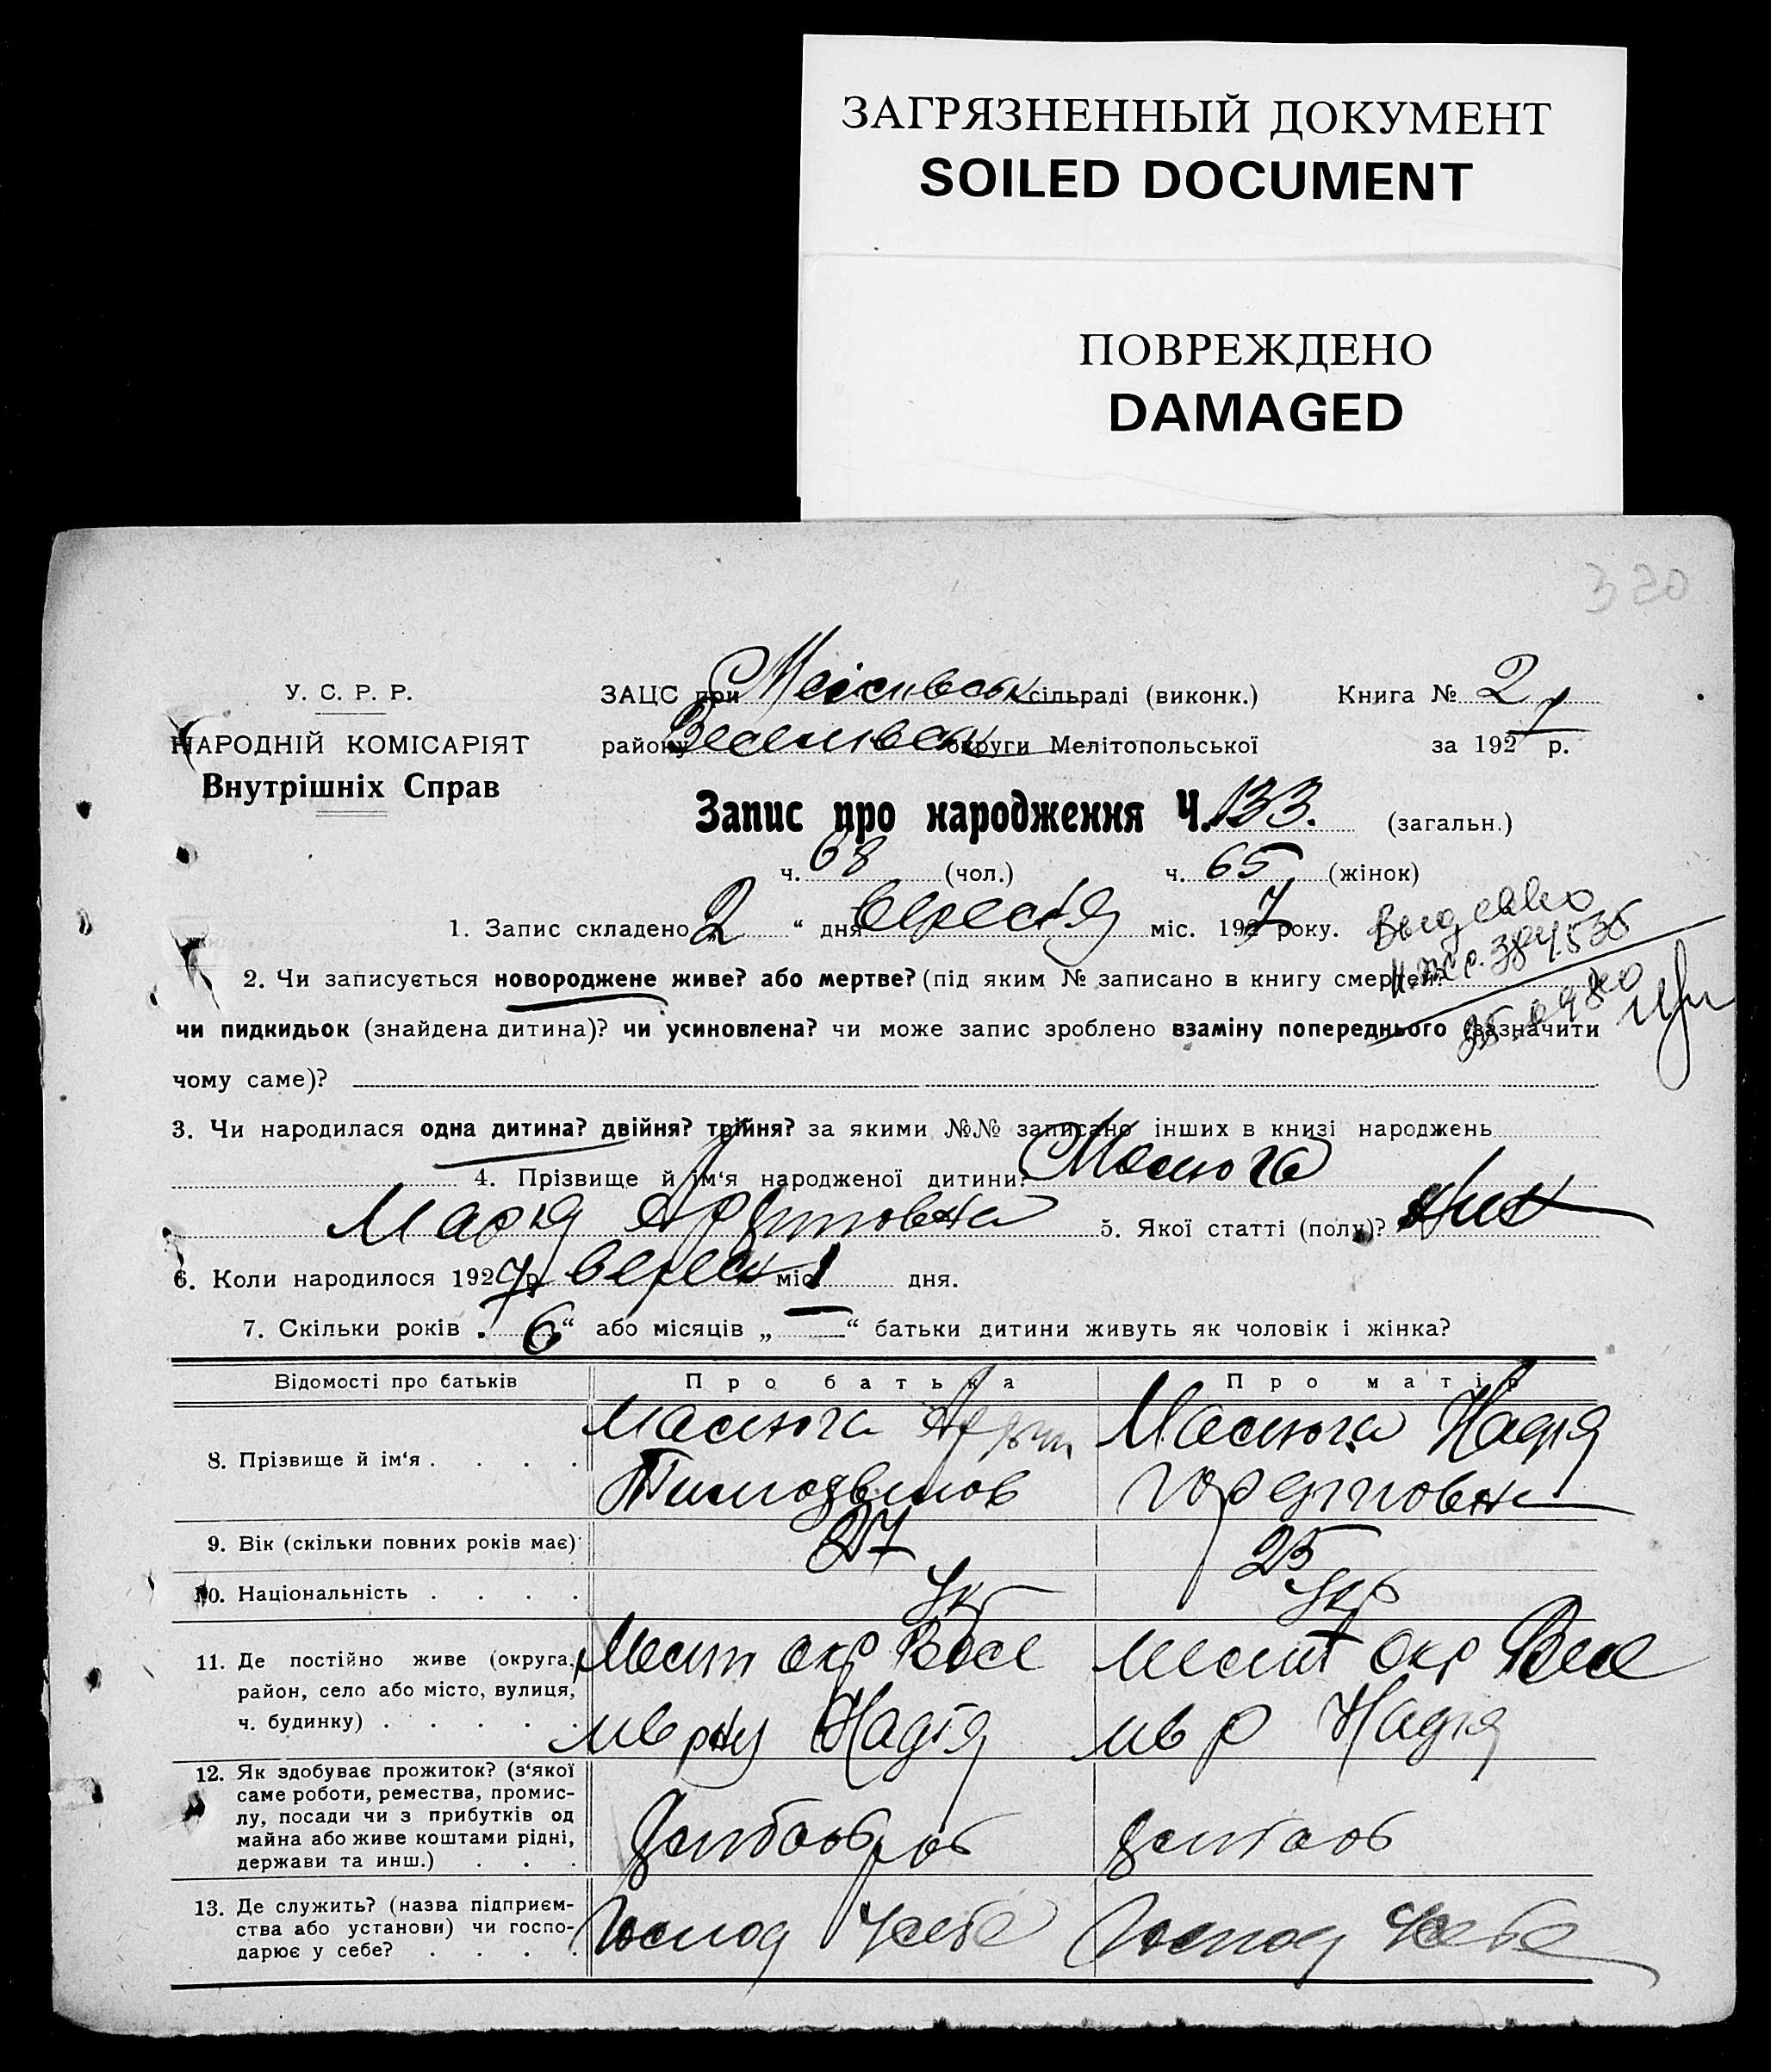 ЗАГРЯЗНЕННЫЙ ДОКУМЕНТ
SOILED DOCUMENT
ПОВРЕЖДЕНО
DAMAGED
320
У. С. Р. Р.
НАРОДНІЙ КОМІСАРІЯТ
Внутрішніх Справ
ЗАЦС при сільраді (виконк.) Книга № 2
району Веселівськ округи Мелітопольської за 1927 р.
Запис про народження Ч. 133. (загальн.)
ч. 68 (чол.) ч. 65 (жінок)
1. Запис складено „ 2 “ дня вересня міс. 1927 року.
Выдано
384535
2. Чи записується новороджене живе? або мертве? (під яким № записано в книгу смертей?
чи пидкидьок (знайдена дитина)? чи усиновлена? чи може запис зроблено взаміну попереднього (зазначити
чому саме)?
3. Чи народилася одна дитина? двійня? трійня? за якими №№ записано інших в книзі народжень
4. Прізвище й ім‘я народженої дитини? Маснюга
Марія 5. Якої статті (полу)? жін
6. Коли народилося 1927 р. верес міс 1 дня.
7. Скільки років „ 6 “ або місяців „ — “ батьки дитини живуть як чоловік і жінка?
Відомості про батьків Про батька Про матір
8. Прізвище й ім‘я . . . . Маснюга Маснюга Надія
9. Вік (скільки повних років має) 27 25
10. Національність . . . . Укр Укр
11. Де постійно живе (округа, район, село або місто, вулиця, ч. будинку) . . . . .
Меліт окр Весе Меліт окр Весе
лів рну Надія лів р Надія
12. Як здобуває прожиток? (з‘якої
саме роботи, ремества, промис-
лу, посади чи з прибутків од
майна або живе коштами рідні,
держави та инш.) . . .
13. Де служить? (назва підприєм-
ства або установи) чи госпо-
дарює у себе? . . . .
Господ у себе Господ у себе